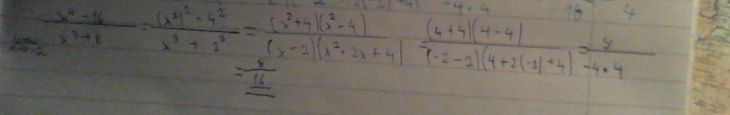 x⁴ - 16 / x³ + 8 = (x²)² - 4² / x³ + 2³ = (x²+4)(x²-4) / (x-2)(x²+2x+4) = (4+4)(4-4) / (-2-2)(4+2(-2)+4) = 8 / -4·4
= 8 / 16